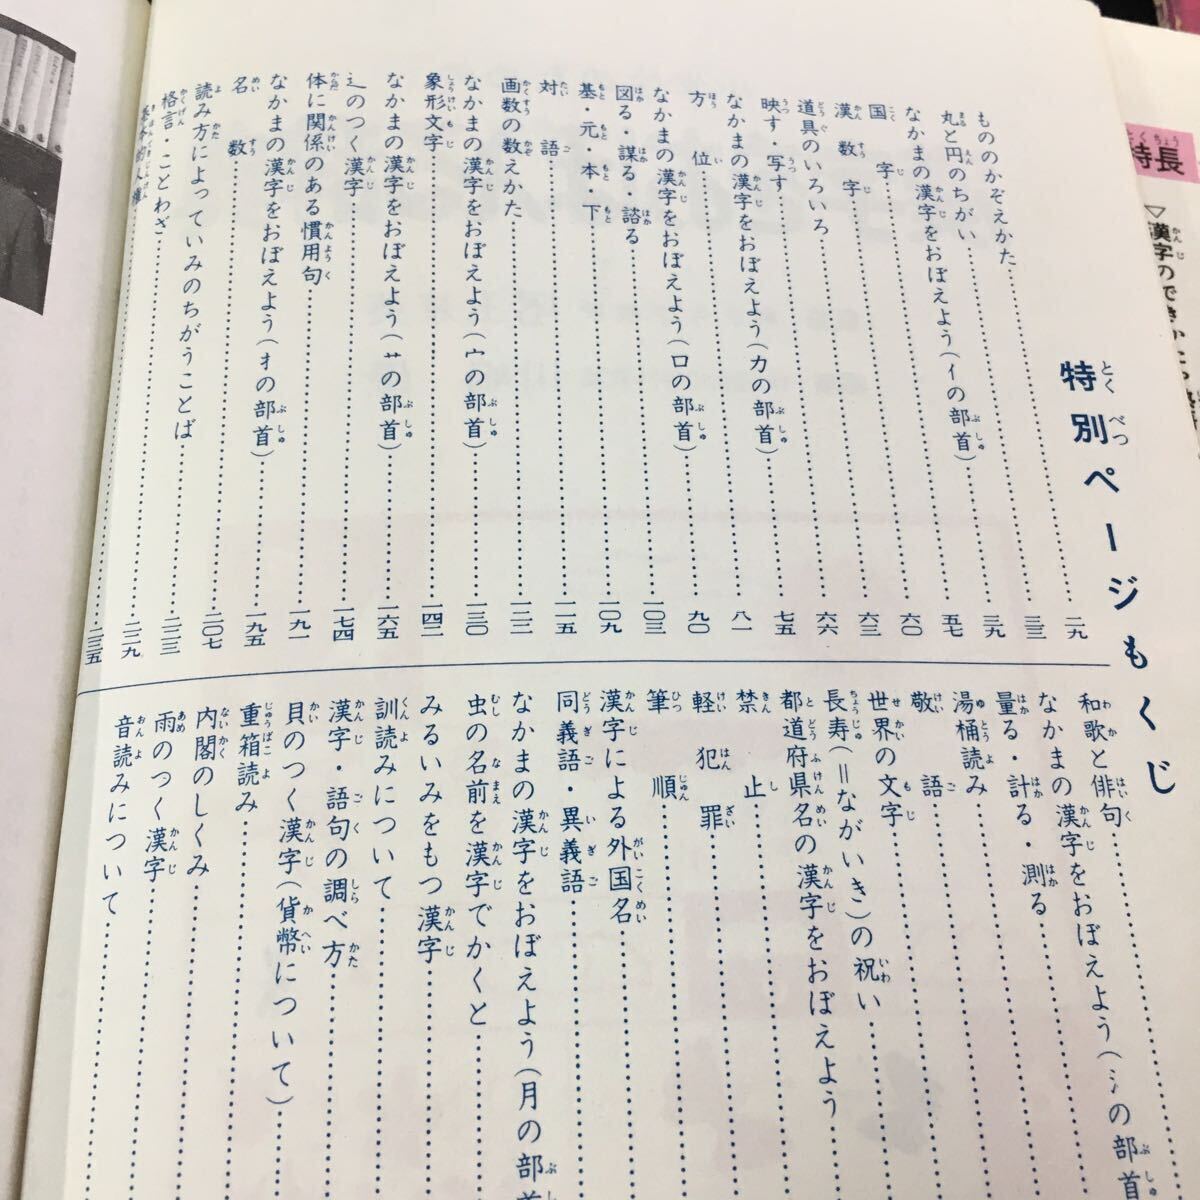 特別ページもくじ
もののかぞえかた……二九
丸と円のちがい……三三
なかまの漢字をおぼえよう(イの部首)……三九
国字……五七
漢数字……六〇
道具のいろいろ……六三
映す・写す……六六
なかまの漢字をおぼえよう(力の部首)……七五
方位……八一
なかまの漢字をおぼえよう(口の部首)……九〇
図る・謀る・諮る……一〇三
基・元・本・下……一〇九
対語……一一五
画数の数えかた……一二二
なかまの漢字をおぼえよう(宀の部首)……一三〇
象形文字……一四二
なかまの漢字をおぼえよう(艹の部首)……一六五
辶のつく漢字……一七四
体に関係のある慣用句……一九一
なかまの漢字をおぼえよう(扌の部首)……一九五
名数……二〇七
読み方によっていみのちがうことば……二二三
格言・ことわざ……二二九
基本的人権……二三五
和歌と俳句……
なかまの漢字をおぼえよう(氵の部首
量る・計る・測る……
湯桶読み……
敬語……
世界の文字……
長寿(=ながいき)の祝い……
都道府県名の漢字をおぼえよう
禁止……
軽犯罪……
筆順……
漢字による外国名……
同義語・異義語……
なかまの漢字をおぼえよう(月の部首
虫の名前を漢字でかくと……
みるいみをもつ漢字……
訓読みについて……
漢字・語句の調べ方……
貝のつく漢字(貨幣について)……
重箱読み……
内閣のしくみ……
雨のつく漢字……
音読みについて……
特長
▽漢字のでき